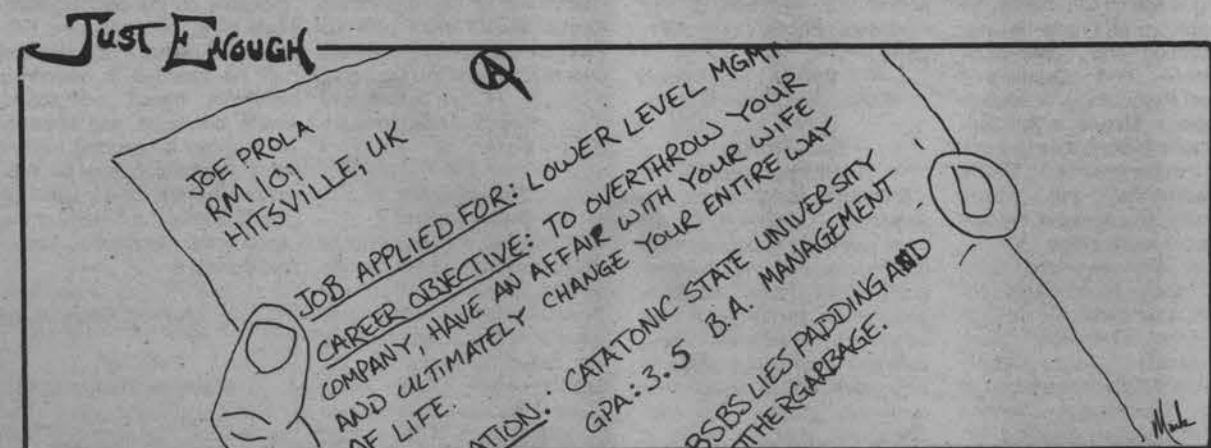 JUST ENOUGH
JOE PROLA
RM 101
HITSVILLE, UK
JOB APPLIED FOR: LOWER LEVEL MGMT
CAREER OBJECTIVE: TO OVERTHROW YOUR
COMPANY, HAVE AN AFFAIR WITH YOUR WIFE
AND ULTIMATELY CHANGE YOUR ENTIRE WAY
OF LIFE.
ATION: CATATONIC STATE UNIVERSITY
GPA: 3.5 B.A. MANAGEMENT
BSBS LIES PADDING AND
OTHERGARBAGE.
Mark